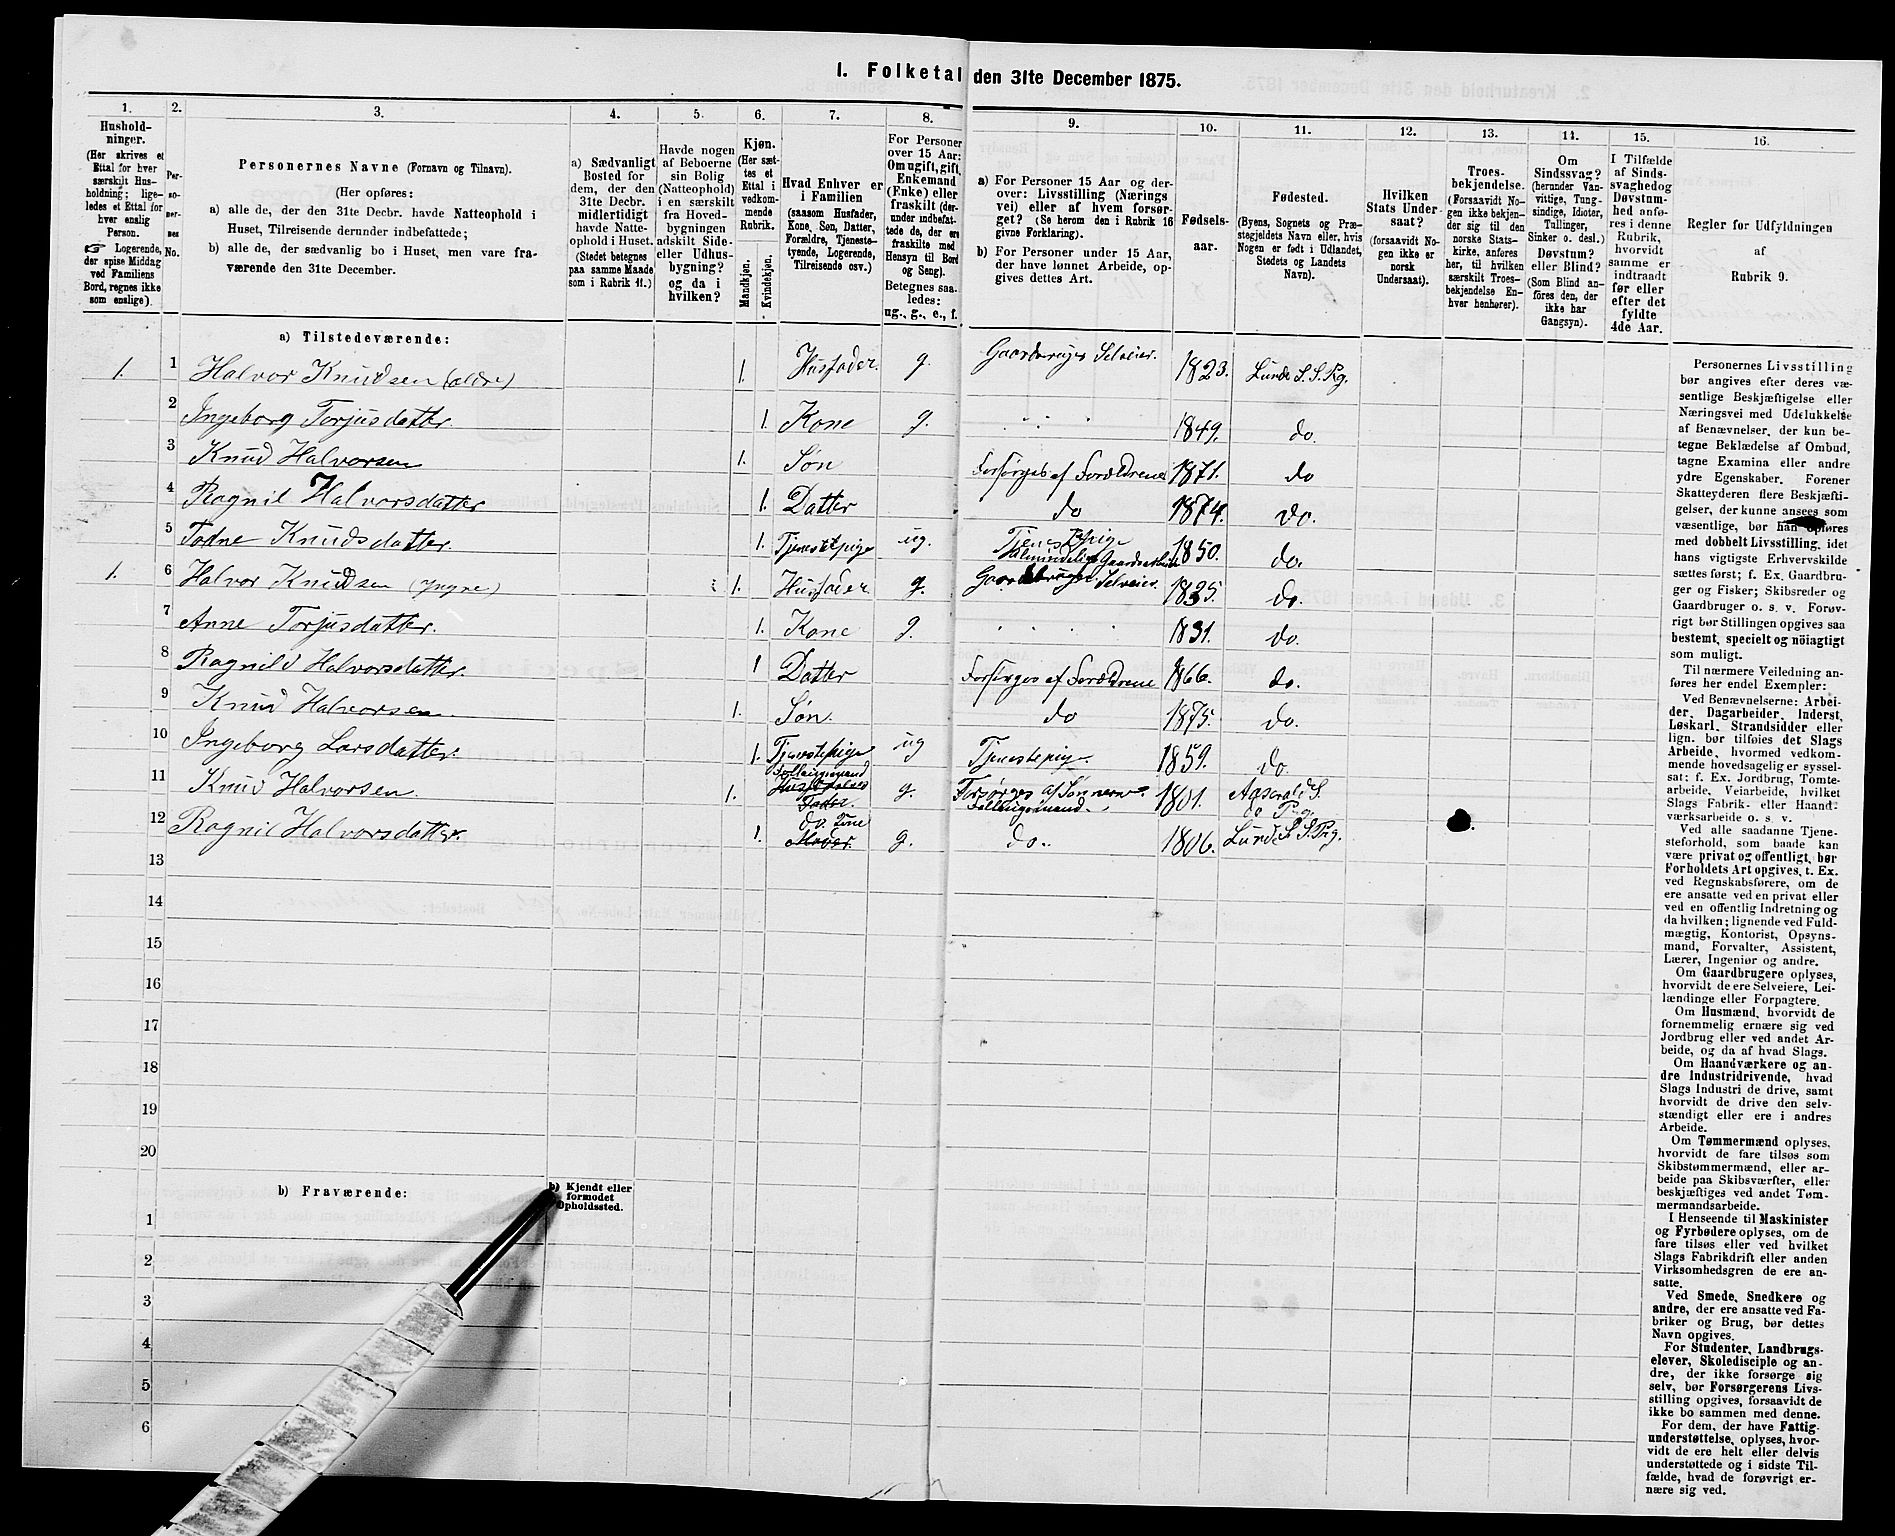 I. Folketal den 31te December 1875.
1.
Hushold-
ninger.
(Her skrives et
Ettal for hver
særskilt Hus-
holdning; lige-
ledes et Ettal for
hver enslig
Person.
☞ Logerende,
der spise Middag
ved Familiens
Bord, regnes ikke
som enslige).
2.
Per-
so-
ner-
nes
No.
3.
Personernes Navne (Fornavn og Tilnavn).
(Her opføres:
a) alle de, der den 31te Decbr. havde Natteophold i
Huset, Tilreisende derunder indbefattede;
b) alle de, der sædvanlig bo i Huset, men vare fra-
værende den 31te December.
4.
a) Sædvanligt
Bosted for
dem, der den
31te Decbr.
midlertidigt
havde Natte-
ophold i Huset.
(Stedet betegnes
paa samme Maade
som i Rubrik 11.)
5.
Havde nogen
af Beboerne
sin Bolig
(Natteophold)
i en særskilt
fra Hoved-
bygningen
adskilt Side-
eller Udhus-
bygning?
og da i
hvilken?
6.
Kjøn.
(Her sæt-
tes et
Ettal i
vedkom-
mende
Rubrik.
Mandkjøn.
Kvindekjøn.
7.
Hvad Enhver er
i Familien
(saasom Husfader,
Kone, Søn, Datter,
Forældre, Tjeneste-
tyende, Logerende,
Tilreisende osv.)
8.
For Personer
over 15 Aar:
Om ugift, gift,
Enkemand
(Enke) eller
fraskilt (der-
under indbefat-
tede de, der ere
fraskilte med
Hensyn til Bord
og Seng).
Betegnes saa-
ledes:
ug., g., e., f.
9.
a) For Personer 15 Aar og der-
over: Livsstilling (Nærings
vei) eller af hvem forsør-
get? (Se herom den i Rubrik 16
givne Forklaring).
b) For Personer under 15 Aar,
der have lønnet Arbeide, op-
gives dettes Art.
10.
Fødsels-
aar.
11.
Fødested.
(Byens, Sognets og Præ-
stegjeldets Navn eller, hvis
Nogen er født i Udlandet,
Stedets og Landets
Navn).
12.
Hvilken
Stats Under
saat?
(forsaavidt No-
gen ikke er
norsk
Undersaat).
13.
Troes-
bekjendelse.
(Forsaavidt No-
gen ikke bekjen-
der sig til den
norske Stats-
kirke, anføres
her, til hvilken
særskilt Troes-
bekjendelse En-
hver henhører).
14.
Om
Sindssvag?
(herunder Van-
vittige, Tung-
sindige, Idioter,
Tullinger,
Sinker o. desl.)
Døvstum?
eller Blind?
(Som Blind an-
føres den, der
ikke har
Gangsyn).
15.
I Tilfælde
af Sinds-
svaghed og
Døvstum-
hed anfø-
res i denne
Rubrik,
hvorvidt
samme er
indtraadt
før eller
efter det
fyldte
4de Aar.
16.
Regler for Udfyldningen
af
Rubrik 9.
a) Tilstedeværende:
1. 1 Halvor Knudsen (ældre) 1. Husfader. g. Gaardbruger Selveier. 1823. Lunde S. S. Prg.
2 Ingeborg Torjusdatter. 1. Kone g. " " " 1849. do.
3 Knud Halvorsen 1. Søn Forsørges af Forældrene 1871. do
4 Ragnil Halvorsdatter 1. Datter do 1874. do.
5 Tadne Knudsdatter. 1. Tjenestepige ug. Tjenestepige
Almindelige 1850. do.
1. 6 Halvor Knudsen (yngre) 1. Husfader. g. Gaardbruger Selveier. 1835. do.
7 Anne Torjusdatter. 1. Kone g. " " " 1831. do.
8 Ragnild Halvorsdatter. 1 Datter Forsørges af Forældrene 1866. do.
9 Knud Halvorsen. 1. Søn. do 1875. do.
10 Ingeborg Larsdatter. 1. Tjenestepige ug Tjenestepige. 1859. do
11 Knud Halvorsen. 1. Føderaadsmand
Fader. g. Forsørges af Sønnerne.
1801. Aaseral S.
do Prg.
12 Ragnil Halvorsdatter. 1. do. Kone
Moder. g. do.. 1806. Lunde S. S. Prg.
13
14
15
16
17
18
19
20
b) Fraværende:
b) Kjendt eller
formodet
Opholdssted.
1
2
3
4
5
6
Personernes Livsstilling
bør angives efter deres væ-
sentlige Beskjæftigelse eller
Næringsvei med Udelukkelse
af Benævnelser, der kun be-
tegne Beklædelse af Ombud,
tagne Examina eller andre
ydre Egenskaber. Forener
Skatteyderen flere Beskjæfti-
gelser, der kunne ansees som
væsentlige, bør han opføres
med dobbelt Livsstilling, idet
hans vigtigste Erhvervskilde
sættes først; f. Ex. Gaardbru-
ger og Fisker; Skibsreder og
Gaardbruger o. s. v. Forøv-
rigt bør Stillingen opgives saa
bestemt, specielt og nöiagtigt
som muligt.
Til nærmere Veiledning an-
føres her endel Exempler:
Ved Benævnelserne: Arbei-
der, Dagarbeider, Inderst,
Løskarl, Strandsidder eller
lign. bør tilføies det Slags
Arbeide, hvormed vedkom-
mende hovedsagelig er syssel-
sat; f. Ex. Jordbrug, Tomte-
arbeide, Veiarbeide, hvilket
Slags Fabrik- eller Haand-
værksarbeide o. s. v.
Ved alle saadanne Tjene-
steforhold, som baade kan
være privat og offentligt, bør
Forholdets Art opgives, t. Ex.
ved Regnskabsførere, om de
ere ansatte ved en privat eller
ved en offentlig Indretning og
da hvilken; lignende ved Fuld-
mægtig, Kontorist, Opsyns-
mand, Forvalter, Assistent,
Lærer, Ingeniør og andre.
Om Gaardbrugere oplyses,
hvorvidt de ere Selveiere, Lei-
lændinge eller Forpagtere.
Om Husmænd, hvorvidt de
fornemmelig ernære sig ved
Jordbrug eller ved andet Ar-
beide, og da af hvad Slags.
Om Haandværkere og an-
dre Industridrivende, hvad
Slags Industri de drive, samt
hvorvidt de drive den selv-
stændigt eller ere i andres
Arbeide.
Om Tømmermænd oplyses,
hvorvidt de fare tilsøs som
Skibstømmermænd, eller ar-
beide paa Skibsværfter, eller
beskjæftiges ved andet Tøm-
mermandsarbeide.
I Henseende til Maskinister
og Fyrbødere oplyses, om de
fare tilsøs eller ved hvilket
Slags Fabrikdrift eller anden
Virksomhedsgren de ere an-
satte.
Ved Smede, Snedkere og
andre, der ere ansatte ved Fa-
briker og Brug, bør dettes
Navn opgives.
For Studenter, Landbrugs-
elever, Skoledisciple og an-
dre, der ikke forsørge sig
selv, bør Forsørgerens Livs-
stilling opgives, forsaavidt de
ikke bo sammen med denne.
For dem, der have Fattig-
understøttelse, oplyses, hvor-
vidt de ere helt eller delvis
understøttede og i sidste Til-
fælde, hvad de forøvrigt er-
nære sig ved.